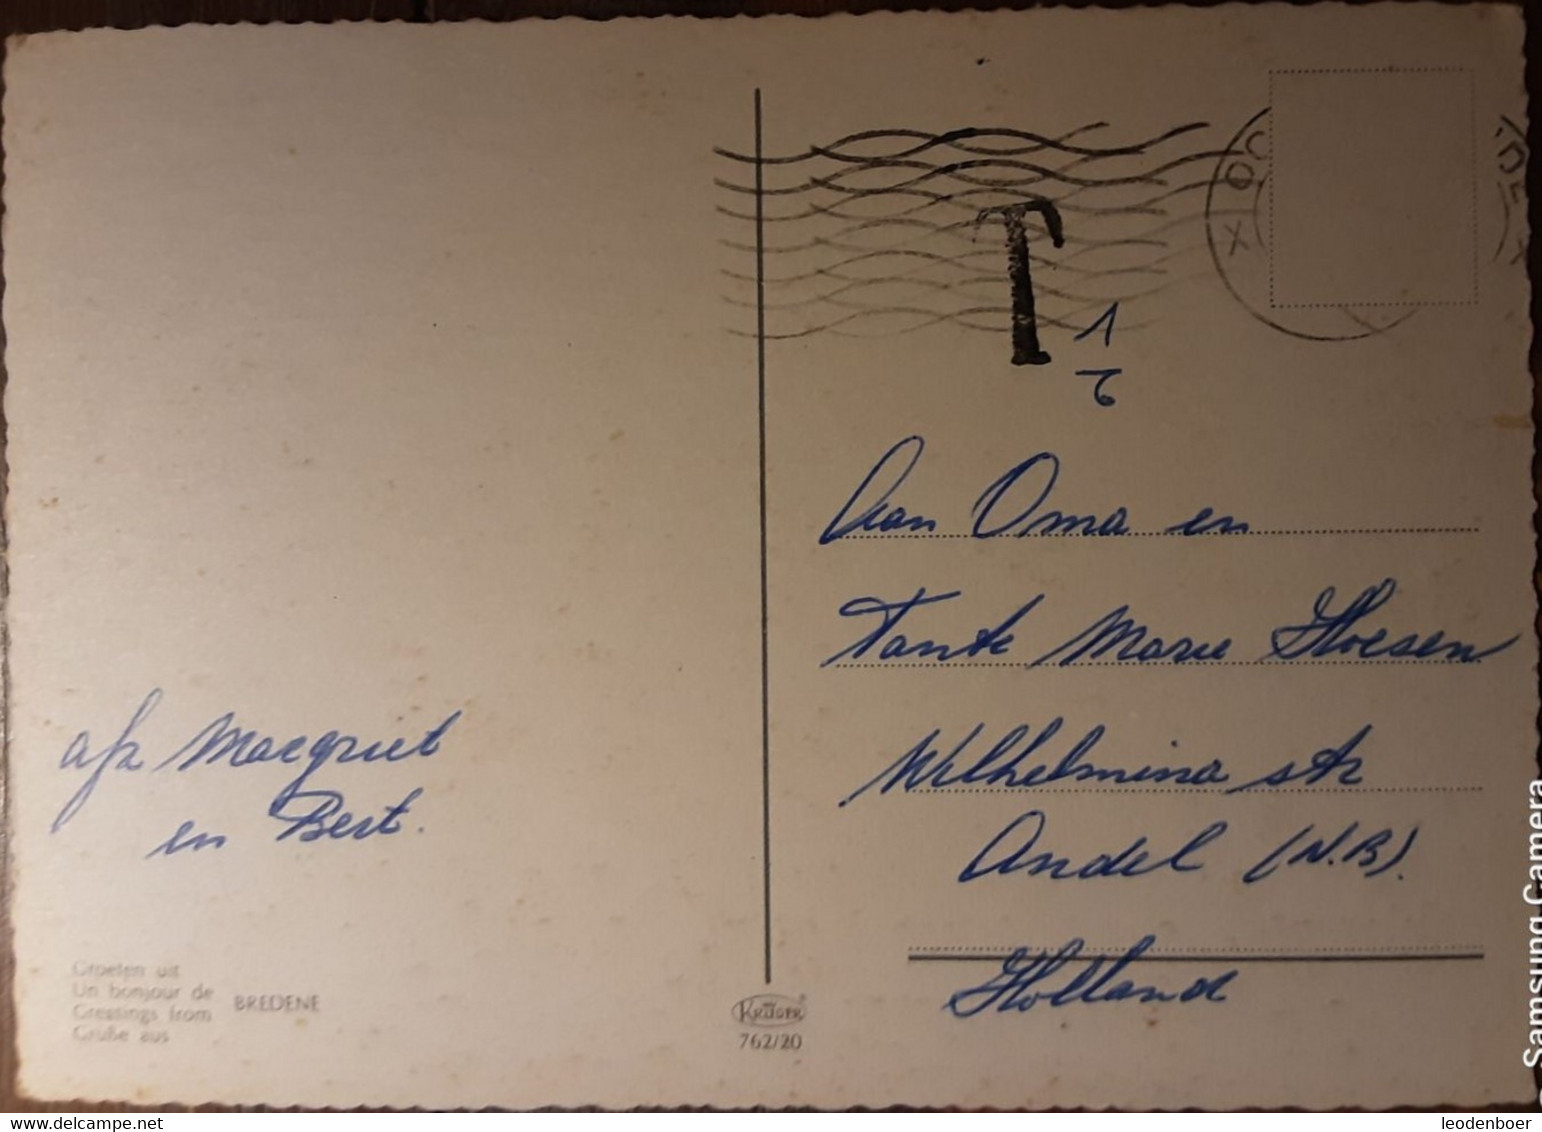 T
1
6
Aan Oma en
Tante Marie Hoesen
Wilhelmina str
Andel (N.B).
Holland
afz Maegriet
en Bert.
Groeten uit
Un bonjour de
Greetings from
Grüße aus
BREDENE
KRÜGER
762/20
Samsung Camera
delcampe.net
leodenboer